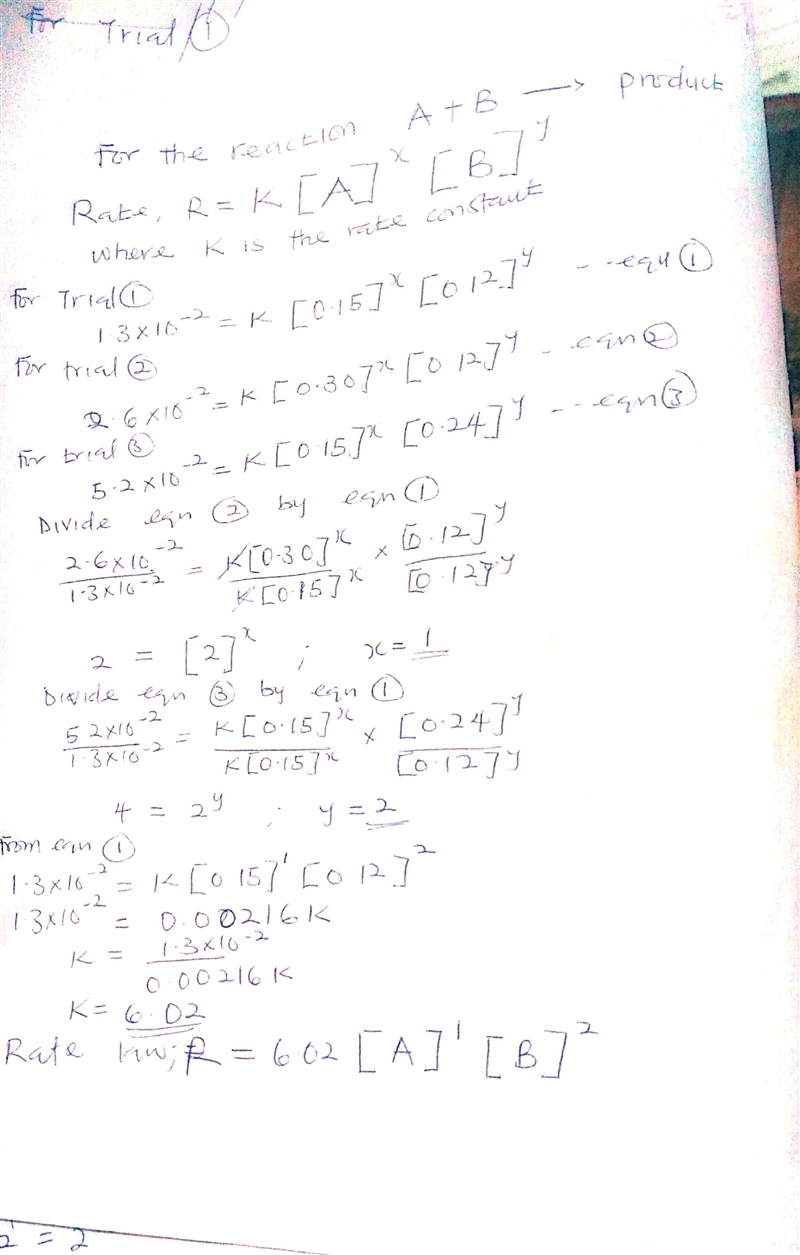 For Trial ①
For the reaction A + B → product
Rate, R = K [A]^x [B]^y
where K is the rate constant
For Trial ①
1.3×10^-2 = K [0.15]^x [0.12]^y --equ ①
For trial ②
2.6×10^-2 = K [0.30]^x [0.12]^y - eqn ②
For trial ③
5.2×10^-2 = K [0.15]^x [0.24]^y -- eqn ③
Divide eqn ② by eqn ①
2.6×10^-2 / 1.3×10^-2 = K[0.30]^x / K[0.15]^x × [0.12]^y / [0.12]^y
2 = [2]^x ; x = 1
Divide eqn ③ by eqn ①
5.2×10^-2 / 1.3×10^-2 = K[0.15]^x / K[0.15]^x × [0.24]^y / [0.12]^y
4 = 2^y ; y = 2
From eqn ①
1.3×10^-2 = K [0.15]^1 [0.12]^2
1.3×10^-2 = 0.00216K
K = 1.3×10^-2 / 0.00216K
K = 6.02
Rate law; R = 6.02 [A]^1 [B]^2
= 2